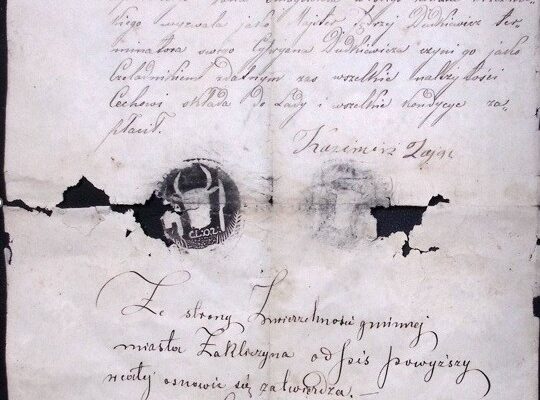 kiego wyzwala jako Majster i Józej Dudkiewicz Ter-
minatora swego Cypryana Dudkiewicza czyni go jako
Czeladnikiem zdatnym zas wszelkie należytości
Cechowi składa do Lady i wszelkie kondycye za-
płacił.
Kazimierz
Ze strony Zwierzchności gminnej
miasta Zakliczyna odpis powyższy
w całej osnowie się zatwierdza. —